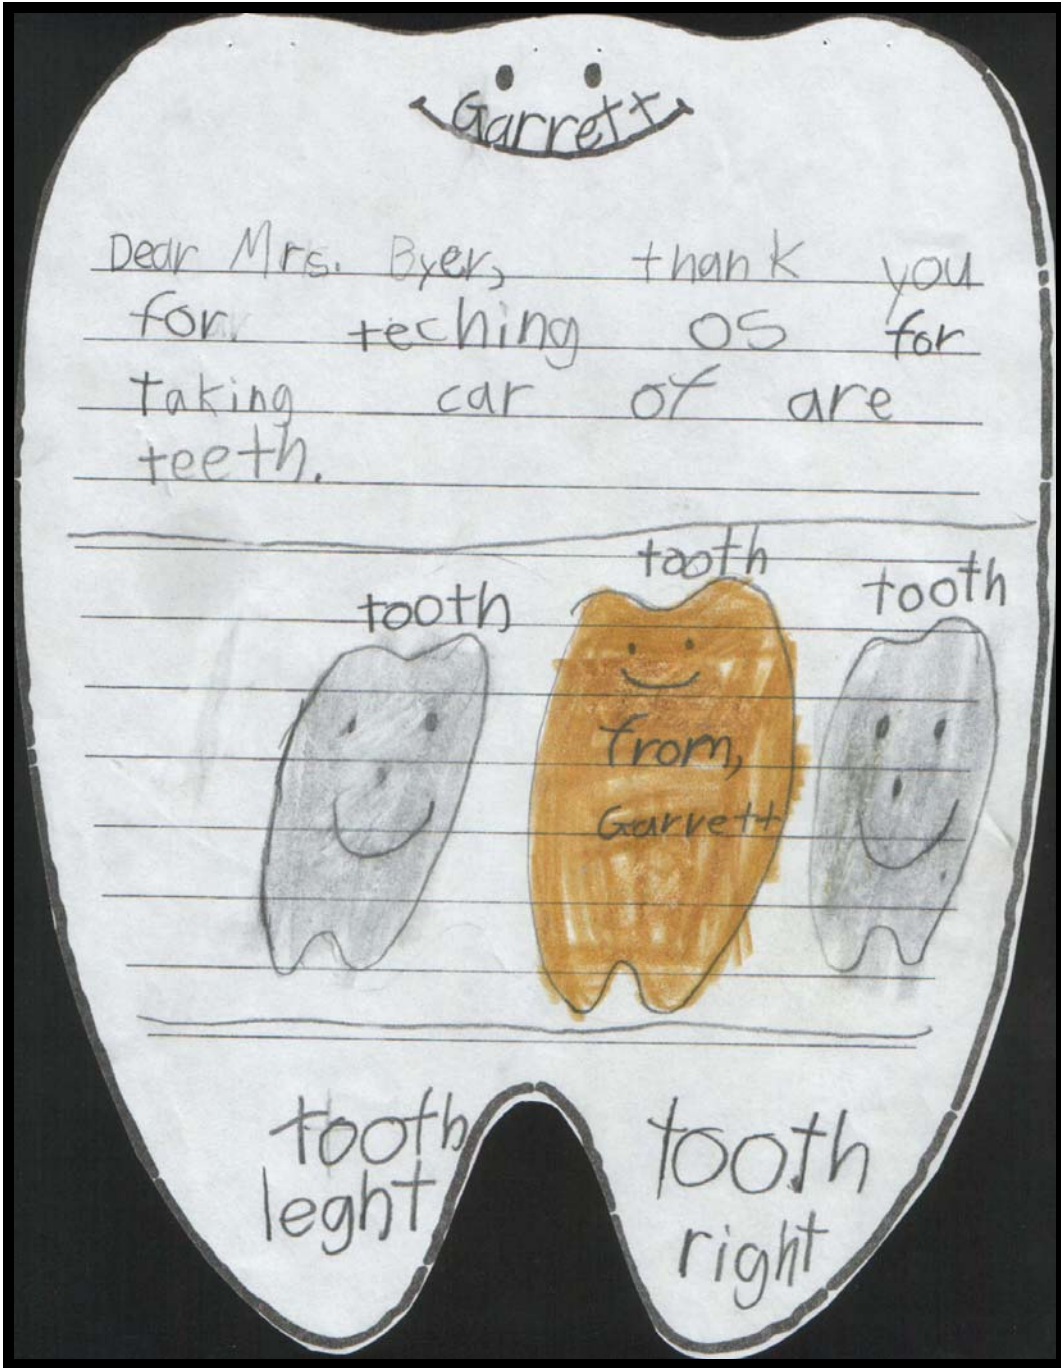 Garrett
Dear Mrs. Byer, thank you
for teching os for
taking car of are
teeth.
tooth
tooth
tooth
from,
Garrett
tooth
leght
tooth
right